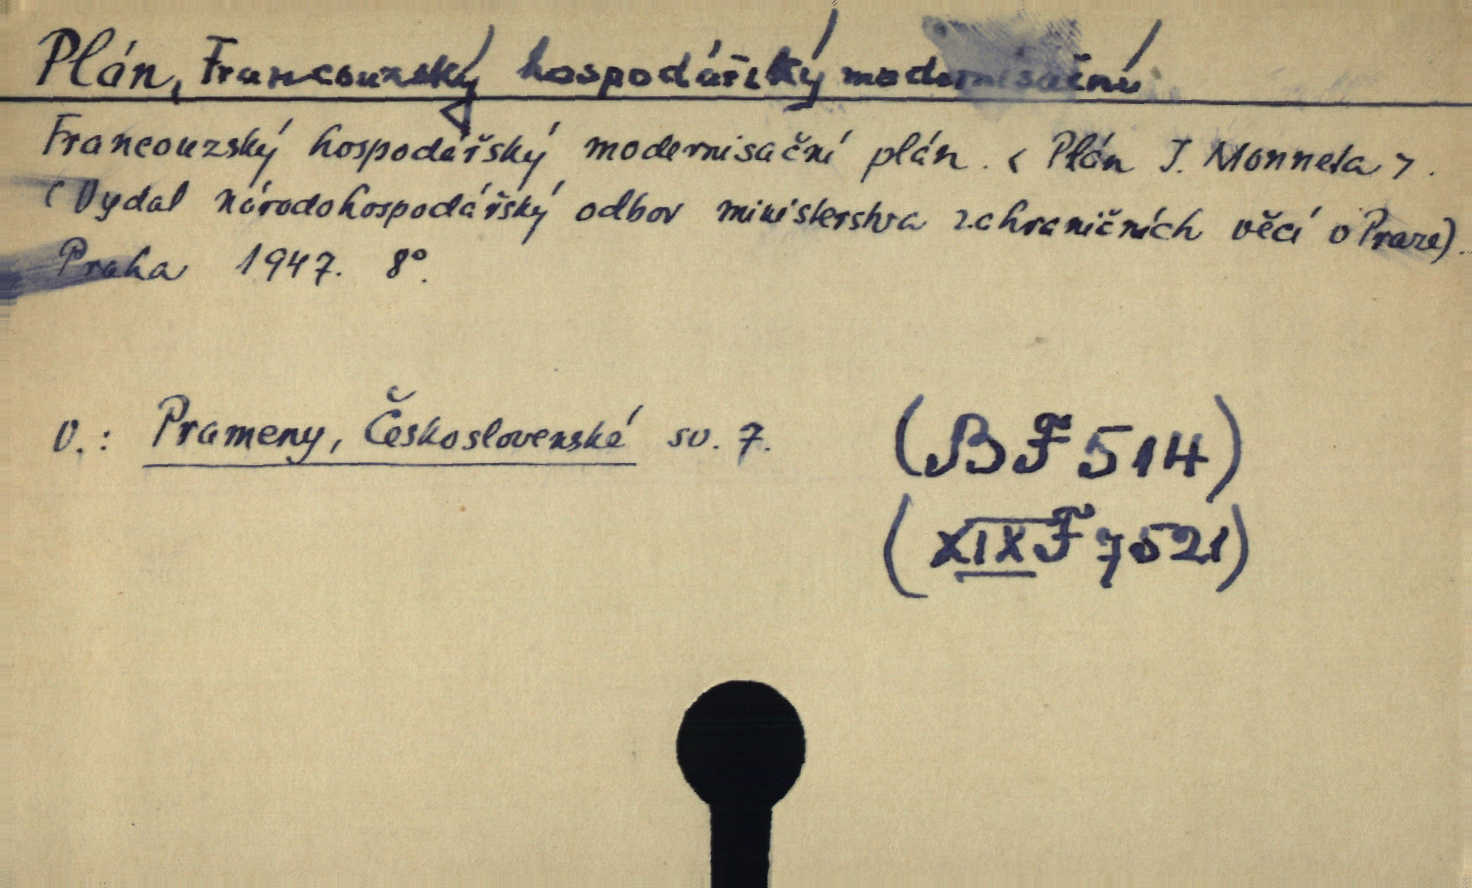 Plán, Francouzský hospodářský modernisační
Francouzský hospodářský modernisační plán. < Plán J. Monneta >.
(Vydal národohospodářský odbor ministerstva zahraničních věcí v Praze).
Praha 1947. 8°.
V.: Prameny, Československé sv. 7.
(BF 514)
(XIX F 7521)